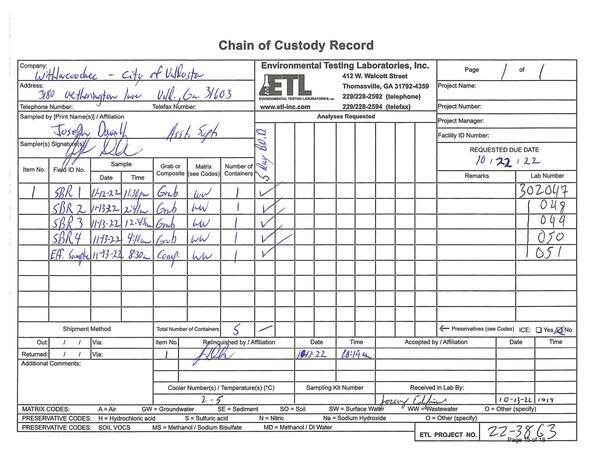 Chain of Custody Record
Company:
Withlacoochee - City of Valdosta
Address:
Telephone Number: Telefax Number:
Environmental Testing Laboratories, Inc.
ETL
ENVIRONMENTAL TESTING LABORATORIES, INC.
412 W. Walcott Street
Thomasville, GA 31792-4359
229/228-2592 (telephone)
www.etl-inc.com 229/228-2594 (telefax)
Page 1 of 1
Project Name:
Project Number:
Project Manager:
Facility ID Number:
REQUESTED DUE DATE
10/22/22
Sampled by [Print Name(s)] / Affiliation
Joseph
Sampler(s) Signature(s)
Analyses Requested
5 Day B.O.D
Item No. Field ID No. Sample Date Time Grab or Composite Matrix (see Codes) Number of Containers Remarks Lab Number
1 SBR 1 Grab WW 1 ✓ 302047
SBR 2 Grab WW 1 ✓ 048
SBR 3 Grab WW 1 ✓ 049
SBR 4 Grab WW 1 ✓ 050
Eff. Comp. WW 1 ✓ 051
Shipment Method Total Number of Containers 5 Preservatives (see Codes) ICE: Yes No
Out: / / Via: Item No. Relinquished by / Affiliation Date Time Accepted by / Affiliation Date Time
Returned: / / Via: 1
Additional Comments:
Cooler Number(s) / Temperature(s) (°C) Sampling Kit Number Received in Lab By:
2-5 10-13-22 1019
MATRIX CODES: A = Air GW = Groundwater SE = Sediment SO = Soil SW = Surface Water WW = Wastewater O = Other (specify)
PRESERVATIVE CODES: H = Hydrochloric acid S = Sulfuric acid N = Nitric Na = Sodium Hydroxide O = Other (specify)
PRESERVATIVE CODES: SOIL VOCS MS = Methanol / Sodium Bisulfate MD = Methanol / DI Water
ETL PROJECT NO. 22-3863